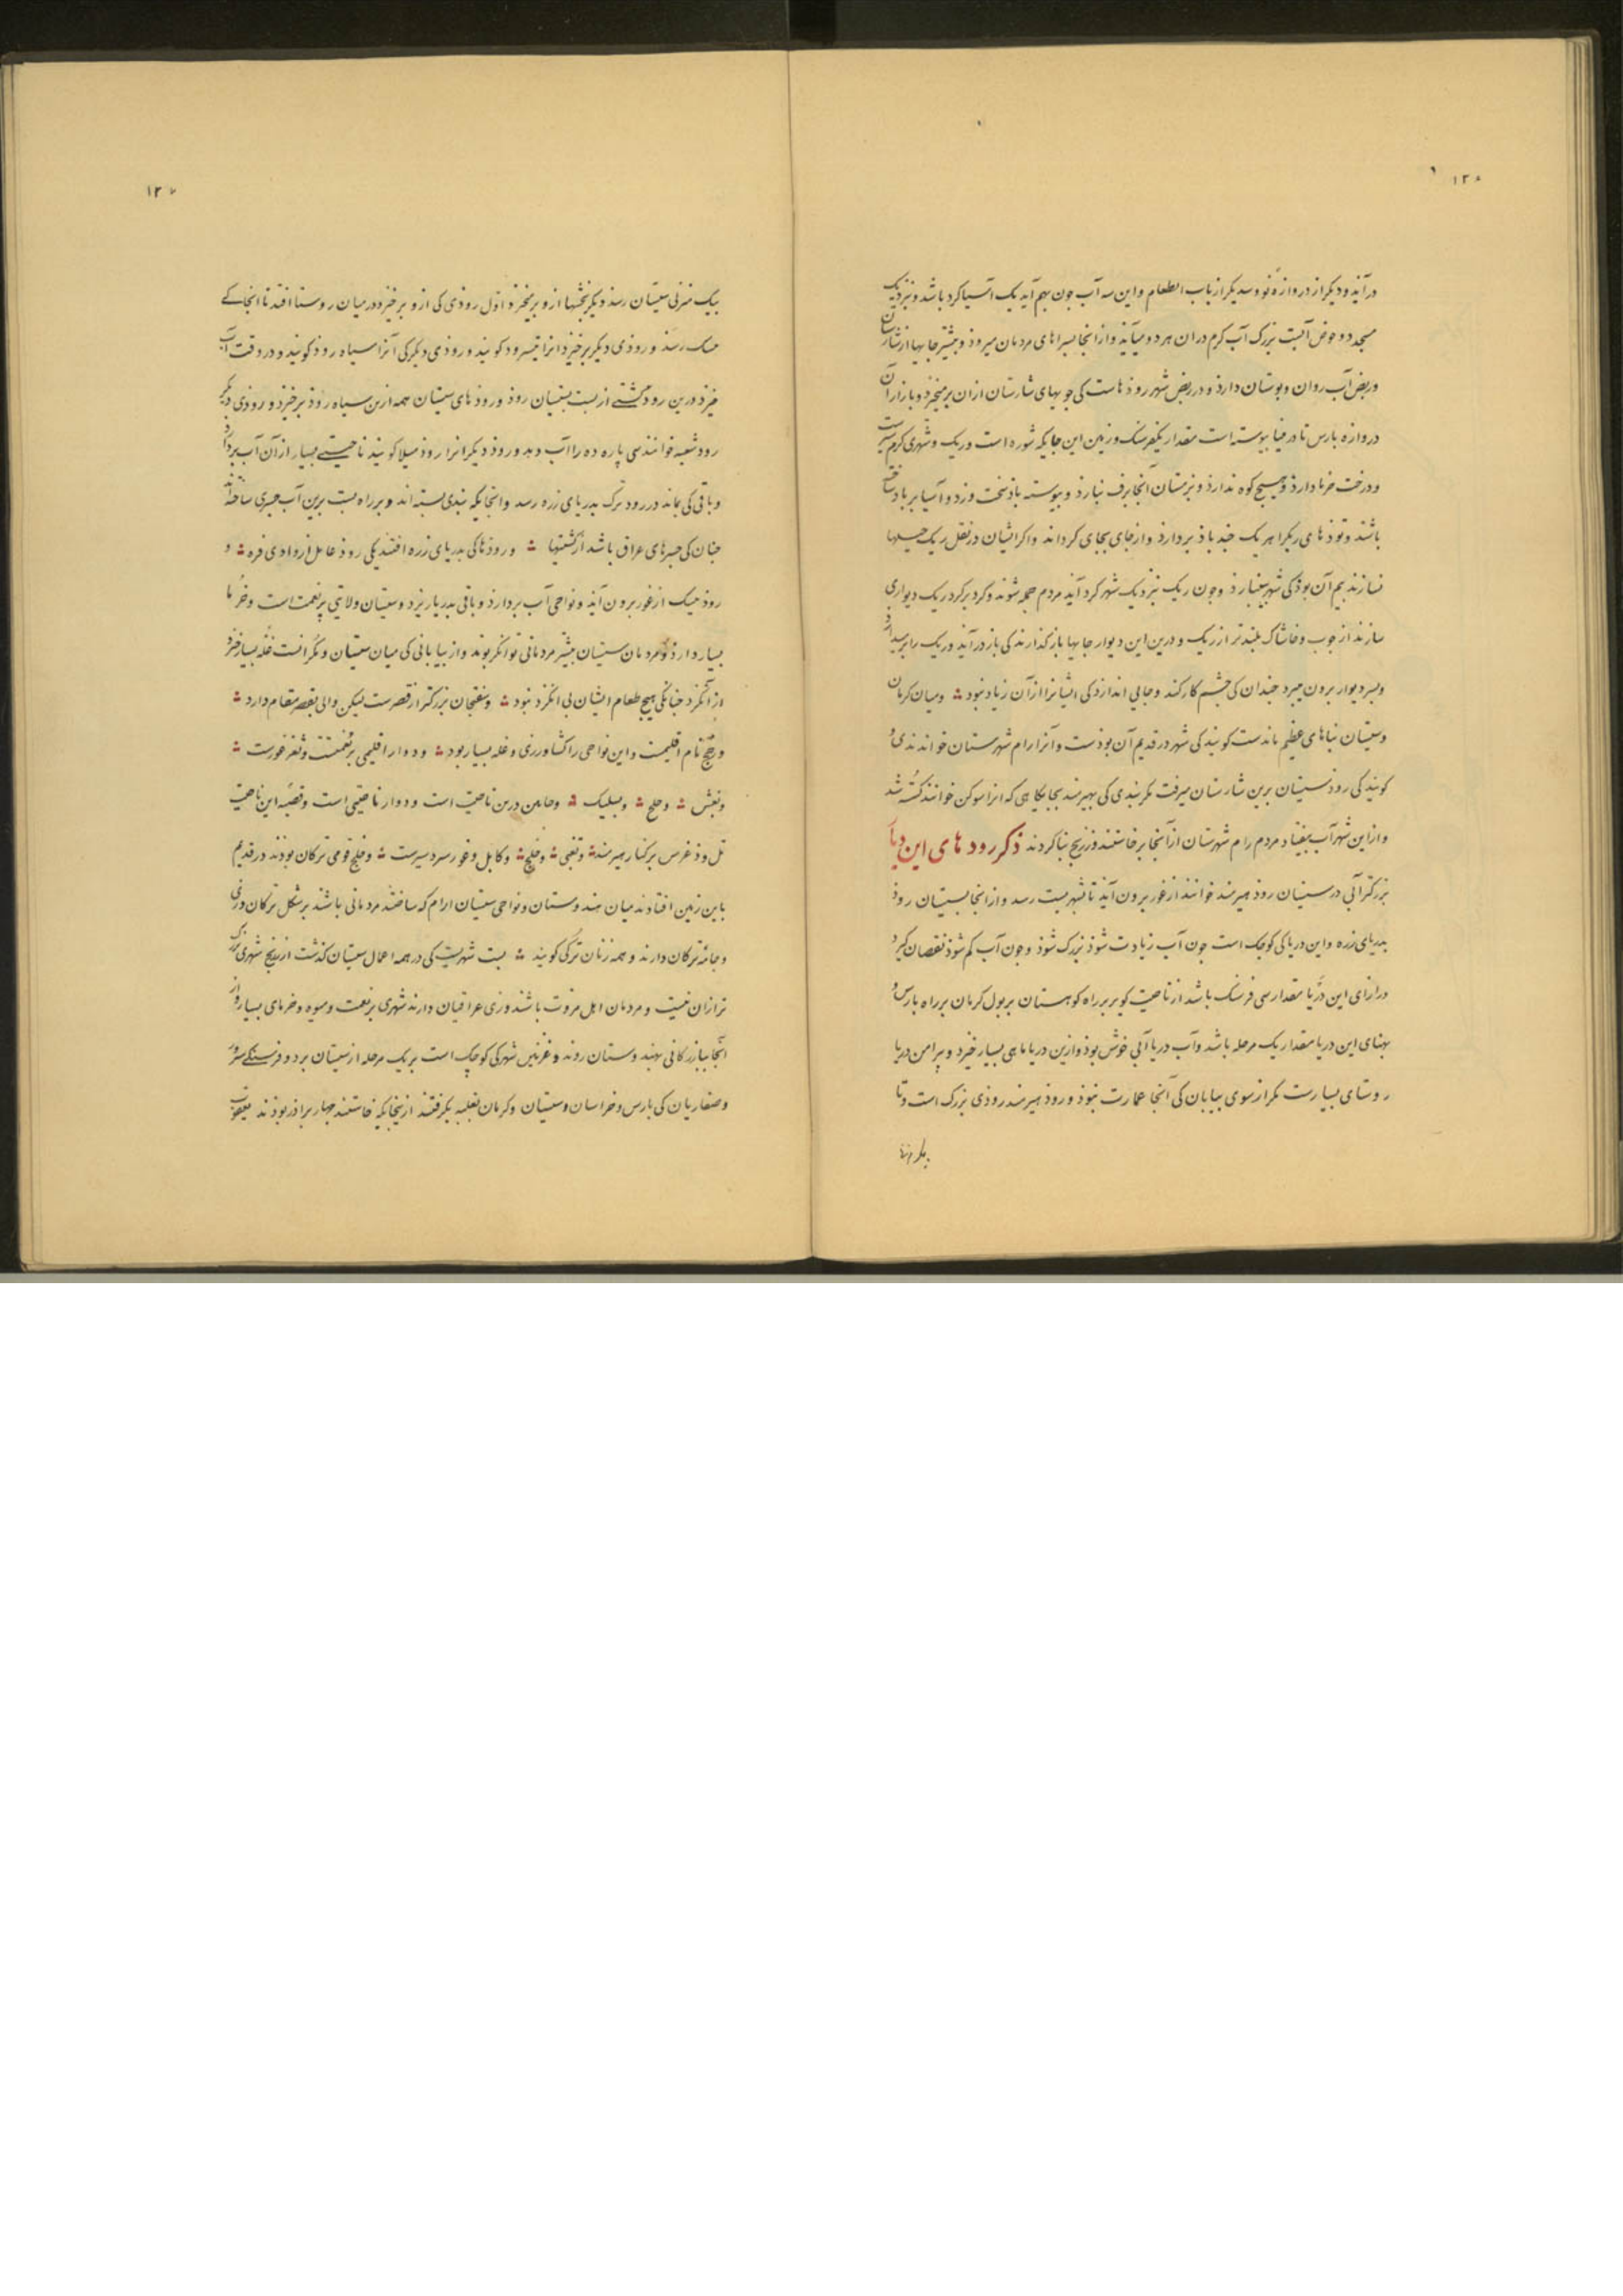 درآید و دیگر از دروازه نو و سدیگر از باب الطعام و این سه آب جون بهم آید یک آسیا کرد باشد و بنزدیک
مسجد دو حوض آبست بزرک آب کرم در ان هر دو میآید و از انجا بسراهای مردمان میروذ و بیشتر جایها از شارستان
و ربض آب روان و بوستان دارذ و در ربض شهر روذهاست کی جویهای شارستان ازان برمیخیزذ و بازار از آن
دروازه بارس تا در مینا بیوسته است مقدار یکفرسنک و زمین این جایکه شوره است و ریک و شهری کرم سیرست
و درخت خرما دارذ و هیچ کوه ندارذ و بزمستان آنجا برف نبارذ و بیوسته باذ سخت وزد و آسیا بر باد ساخته
باشند و توذهای ریکرا هر یک جند باذ بردارذ و از جای بجای کرداند و اکر ایشان در نقل ریک حیلها
نسازند بیم آن بوذ کی شهر بینبارذ و جون ریک بنزدیک شهر کرد آید مردم جمله شوند و کرد بر کرد ریک دیواری
سازند از جوب و خاشاک بلندتر از ریک و درین این دیوار جایها باز کذارند کی باز درآید و ریک را بر
و بسر دیوار برون میبرد جندان کی جشم کار کند و جایی اندازد کی ایشانرا از آن زیاد نبود و میان کرمان
و سیستان بناهای عظیم ماندست کویند کی شهر در قدیم آن بوذست و آنرا رام شهرستان خواندندی و
کویند کی رود سیستان برین شارستان میرفت مکر بندی کی بهیرمند بجایکاهی که انرا سوکن خوانند کسسته شد
و از این شهر آب بیفتاد مردم رام شهرستان از آنجا برخاستند و زرنج بنا کردند ذکر رودهای این دیار
بزرکتر آبی در سیستان روذ هیرمند خوانند از غور برون آید تا بشهر بست رسد و از انجا بسیستان روذ
بدریای زره و این دریاکی کوجک است جون آب زیادت شوذ بزرک شوذ و جون آب کم شوذ نقصان کیرد
درازای این دریا مقدار سی فرسنک باشد از ناحیت کویر بر راه کوهستان بر بول کرمان بر راه بارس و
بهنای این دریا مقدار یک مرحله باشد و آب دریا آبی خوش بوذ و ازین دریا ماهی بسیار خیزد و بیرامن دریا
روستای بسیارست مکر از سوی بیابان کی آنجا عمارت نبوذ و روذ هیرمند روذی بزرک است و تا
بیک منزلی سیستان رسذ دیکر بخشها ازو برمیخیزد اول روذی کی ازو برخیزد در میان روستا افتد تا انجا کے
میک رسد و روذی دیکر برخیزذ انرا تیسرود کویند و روذی دیکر کی آنرا سیاه روذ کویند و در وقت آب
خیز ذرین روذ کشتی از بست بسیستان روذ و روذهای سیستان همه ازین سیاه روذ برخیزد و روذی دیکر
رود شعبه خوانند سی پاره ده را آب دهد و روذ دیکر انرا روذ میلا کویند ناحیتی بسیار از آن آب بردارد
و باقی کی بماند در رود بزرک بدریای زره رسد و انجایکه بندی بسته اند و بر راه بست برین آب جسری ساخته اند
جنان کی جسرهای عراق باشد از کشتیها و روذها کی بدریای زره افتد یکی روذ عامل از وادی فره و
روذ میک از غور برون آید و نواحی آب بردارذ و باقی بدریا ریزد و سیستان ولایتی پرنعمت است و خرما
بسیار دارد و مردمان سیستان بیشتر مردمانی توانکر بوند و از بیابانی کی میان سیستان و مکرانست غله بسیار خیزد
از انکزد جنانکی هیج طعام ایشان بی انکزد نبود و بنجوان بزرکتر از قصرست لیکن والی بقصر مقام دارد
و رخج نام اقلیمست و این نواحی را کشاورزی و غله بسیار بود و دوار اقلیمی پرنعمتست و ثغر غورست
و بغش و خلج و بیلیک و خاس درین ناحیت است و دوار ناحیتی است و قصبه این ناحیت
تل و ذغرس بر کنار هیرمند و بغنی و خلج و کابل و غور سردسیرست و خلج قومی ترکان بودند در قدیم
باین زمین افتاوند میان هندوستان و نواحی سیستان ارام که ساختند مردمانی باشند بر شکل ترکان و زی
و جامه ترکان دارند و همه زنان ترکی کویند بست شهریست کی در همه اعمال سیستان کذشت از زرنج شهری بزرک
تر از ان نیست و مردمان اهل مروت باشند و زی عراقیان دارند شهری پرنعمت و میوه و خرمای بسیار و از
آنجا ببازرکانی بهندوستان روند و غزنین شهرکی کوچک است بر یک مرحله از سیستان بر دو فرسنکی سروز
و صفاریان کی بارس و خراسان و سیستان و کرمان بغلبه بکرفتند از ینجایکه خاستند جهار براذر بوذند یعقوب